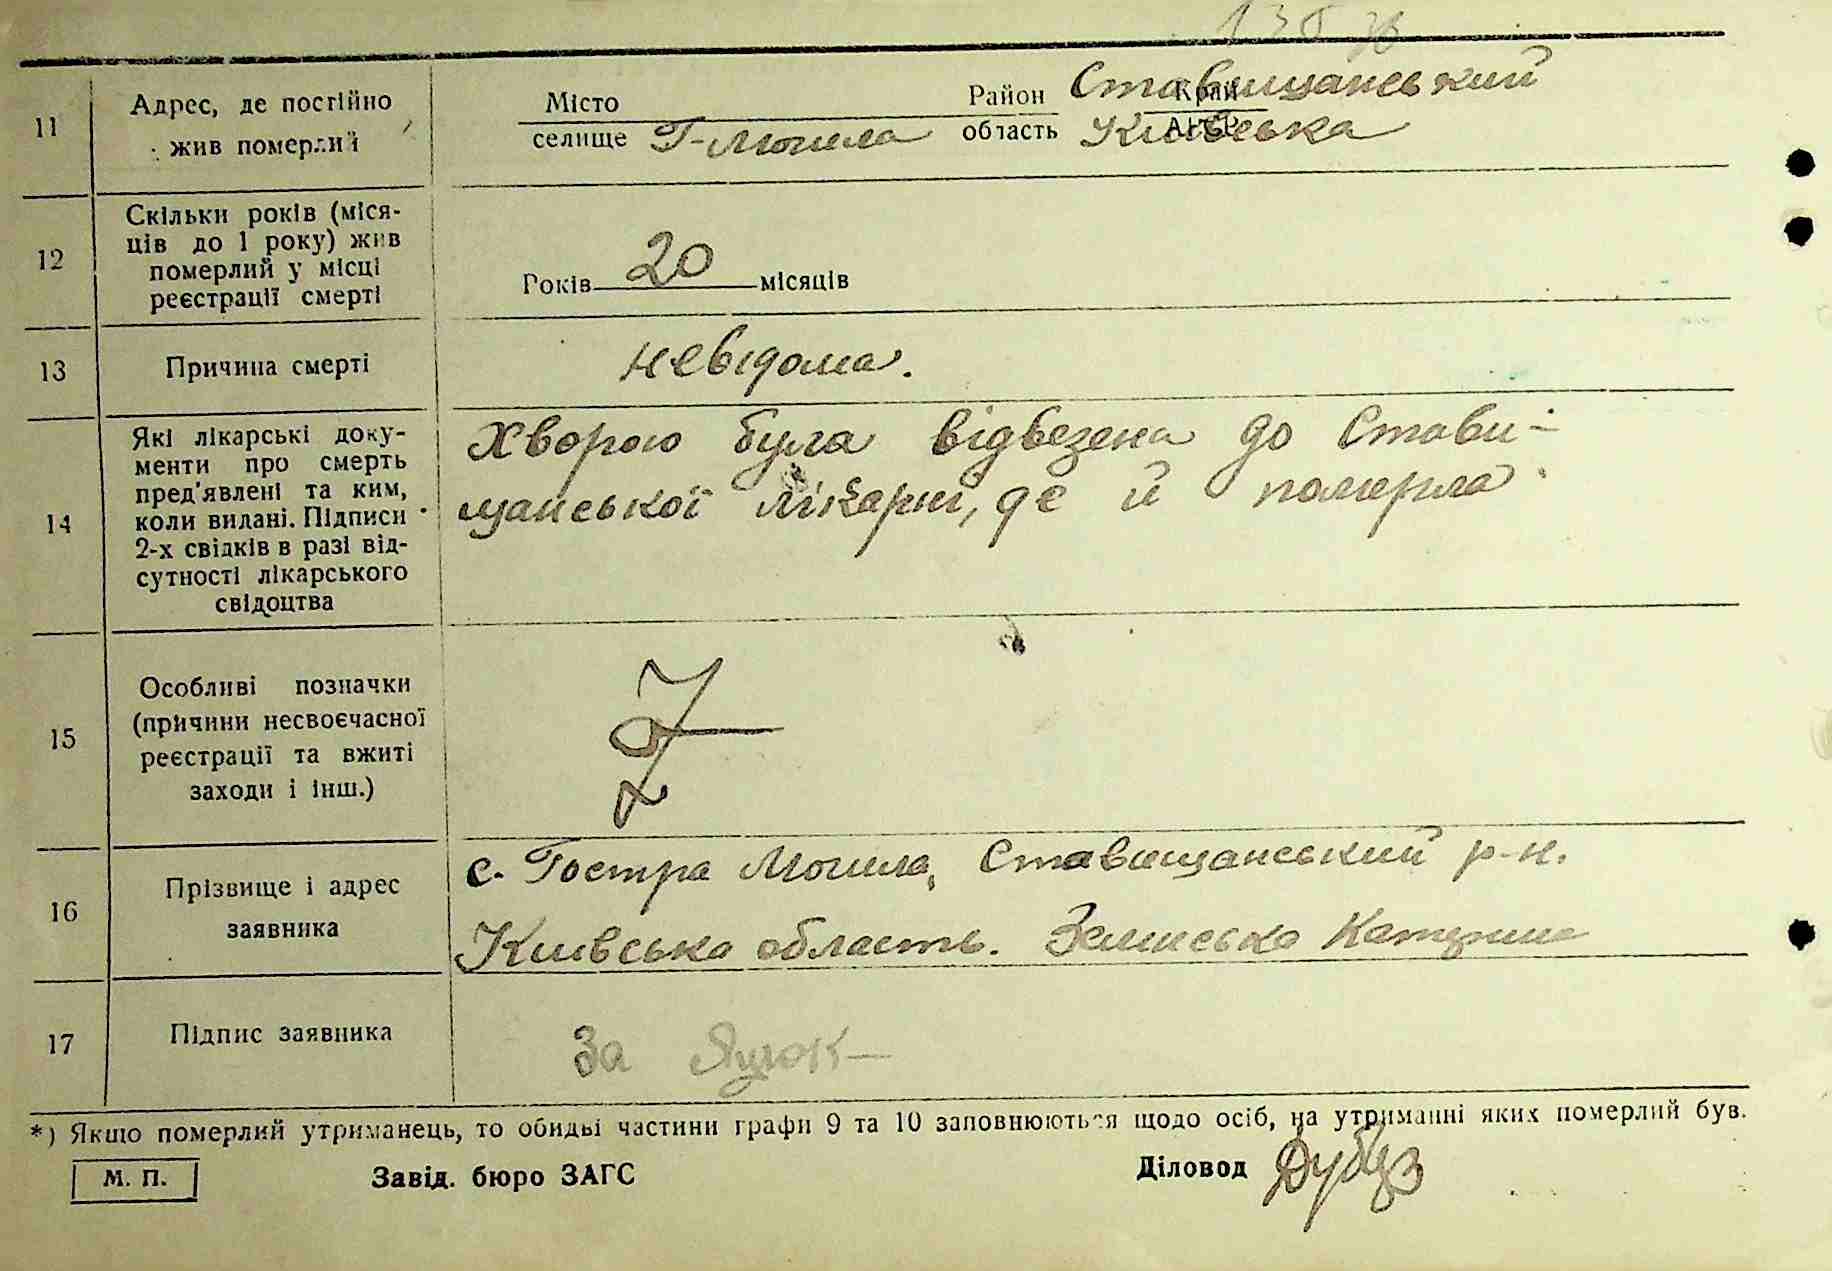 11
Адрес, де постійно
жив померлий
Місто
селище Г-Могила
Район Ставищанський Край
область Київська АРСР
12
Скільки років (міся-
ців до 1 року) жив
померлий у місці
реєстрації смерті
Років 20 місяців
13
Причина смерті
невідома.
14
Які лікарські доку-
менти про смерть
пред'явлені та ким,
коли видані. Підписи
2-х свідків в разі від-
сутності лікарського
свідоцтва
Хворою була відвезена до Стави-
щанської лікарні, де й померла
15
Особливі позначки
(причини несвоєчасної
реєстрації та вжиті
заходи і інш.)
16
Прізвище і адрес
заявника
с. Гостра Могила, Ставищанський р-н.
Київська область. Катерина
17
Підпис заявника
За
*) Якщо померлий утриманець, то обидві частини графи 9 та 10 заповнюються щодо осіб, на утриманні яких померлий був.
М. П.
Завід. бюро ЗАГС
Діловод